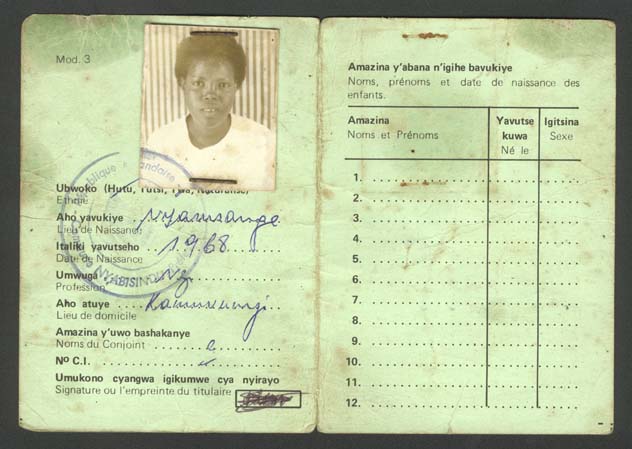 Mod. 3
Ubwoko (Hutu, Tutsi, Twa, Naturalisé)
Ethnie
Aho yavukiye
Lieu de Naissance
Italiki yavutseho 1968
Date de Naissance
Umwuga
Profession
Aho atuye
Lieu de domicile
Amazina y'uwo bashakanye
Noms du Conjoint
No C.I.
Umukono cyangwa igikumwe cya nyirayo
Signature ou l'empreinte du titulaire
NYABISINDU
Amazina y'abana n'igihe bavukiye
Noms, prénoms et date de naissance des
enfants.
Amazina Yavutse Igitsina
Noms et Prénoms kuwa Sexe
Né le
1.
2.
3.
4.
5.
6.
7.
8.
9.
10.
11.
12.